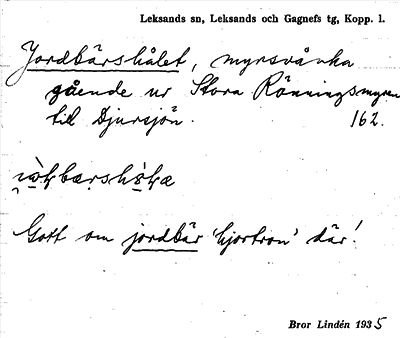 Leksands sn, Leksands och Gagnefs tg, Kopp. l.
Jordbärshålet, myrsvånka
gående ur Stora Rönningsmyren
till Djursjön. 162.
Gott om jordbär 'hjortron' där!
Bror Lindén 1935